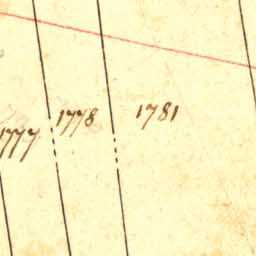 1777 1778 1781